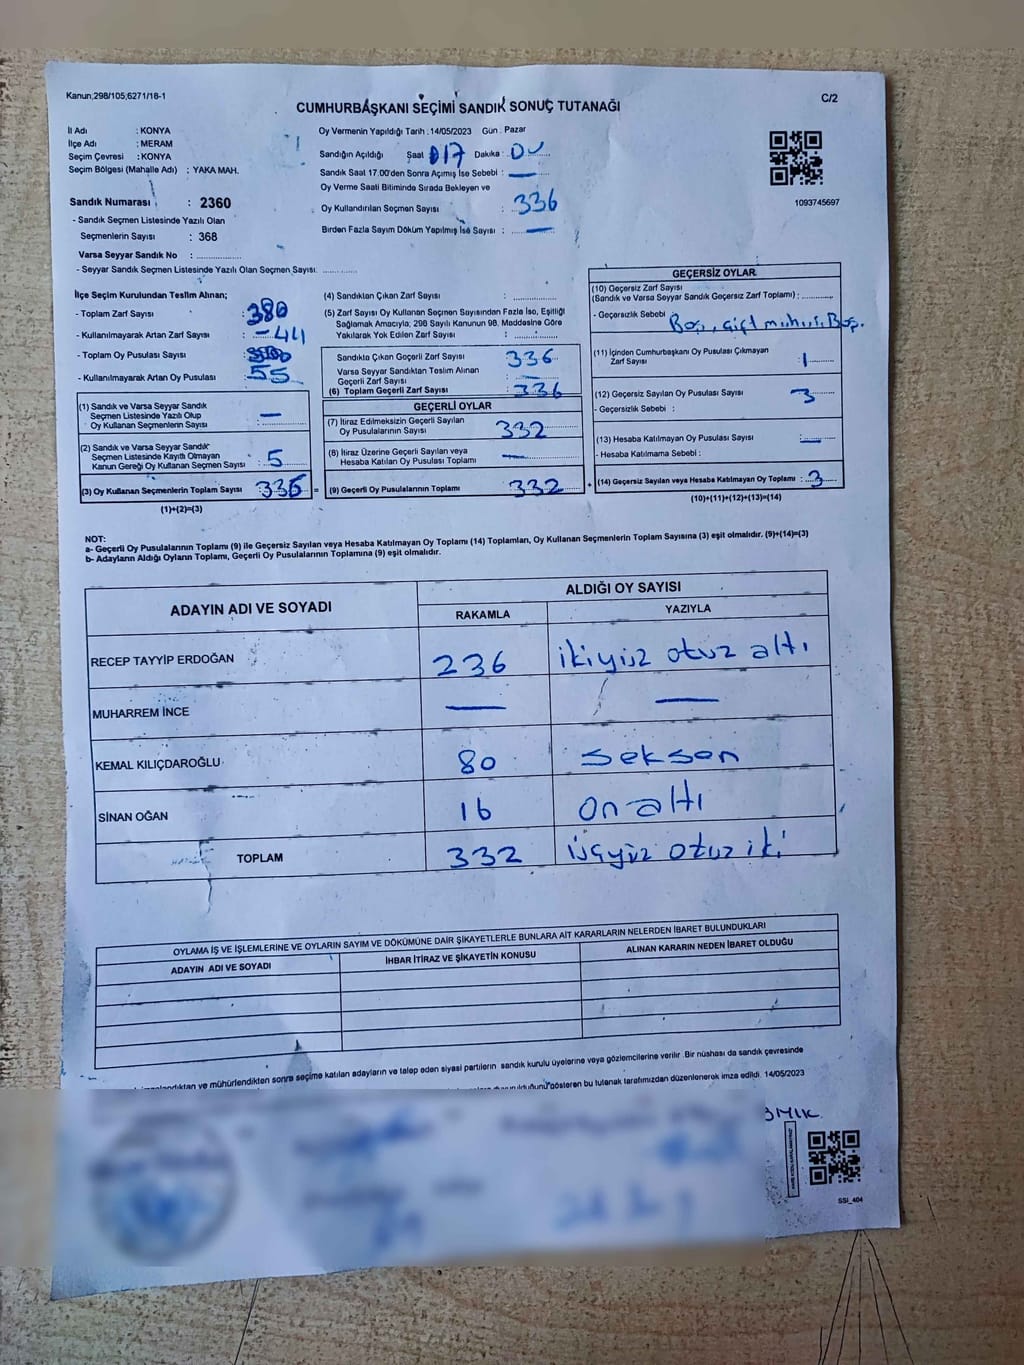 Kanun,298/105;6271/18-1
CUMHURBAŞKANI SEÇİMİ SANDIK SONUÇ TUTANAĞI
C/2
İl Adı : KONYA
İlçe Adı : MERAM
Seçim Çevresi : KONYA
Seçim Bölgesi (Mahalle Adı) : YAKA MAH.
Sandık Numarası : 2360
- Sandık Seçmen Listesinde Yazılı Olan
Seçmenlerin Sayısı : 368
Varsa Seyyar Sandık No :
- Seyyar Sandık Seçmen Listesinde Yazılı Olan Seçmen Sayısı:
Oy Vermenin Yapıldığı Tarih : 14/05/2023 Gün : Pazar
Sandığın Açıldığı Saat 17 Dakika :
Sandık Saat 17.00'den Sonra Açımış İse Sebebi : —
Oy Verme Saati Bitiminde Sırada Bekleyen ve
Oy Kullandırılan Seçmen Sayısı : 336
Birden Fazla Sayım Döküm Yapılmış İse Sayısı : —
1093745697
İlçe Seçim Kurulundan Teslim Alınan;
- Toplam Zarf Sayısı : 380
- Kullanılmayarak Artan Zarf Sayısı : -44
- Toplam Oy Pusulası Sayısı :
- Kullanılmayarak Artan Oy Pusulası : 55
(1) Sandık ve Varsa Seyyar Sandık
Seçmen Listesinde Yazılı Olup
Oy Kullanan Seçmenlerin Sayısı : —
(2) Sandık ve Varsa Seyyar Sandık
Seçmen Listesinde Kayıtlı Olmayan
Kanun Gereği Oy Kullanan Seçmen Sayısı : 5
(3) Oy Kullanan Seçmenlerin Toplam Sayısı : 336 =
(1)+(2)=(3)
(4) Sandıktan Çıkan Zarf Sayısı :
(5) Zarf Sayısı Oy Kullanan Seçmen Sayısından Fazla İse, Eşitliği
Sağlamak Amacıyla; 298 Sayılı Kanunun 98. Maddesine Göre
Yakılarak Yok Edilen Zarf Sayısı :
Sandıkta Çıkan Geçerli Zarf Sayısı 336
Varsa Seyyar Sandıktan Teslim Alınan
Geçerli Zarf Sayısı : —
(6) Toplam Geçerli Zarf Sayısı : 336
GEÇERLİ OYLAR
(7) İtiraz Edilmeksizin Geçerli Sayılan
Oy Pusulalarının Sayısı : 332
(8) İtiraz Üzerine Geçerli Sayılan veya
Hesaba Katılan Oy Pusulası Toplamı : —
(9) Geçerli Oy Pusulalarının Toplamı 332 +
GEÇERSİZ OYLAR
(10) Geçersiz Zarf Sayısı
(Sandık ve Varsa Seyyar Sandık Geçersiz Zarf Toplamı) :
- Geçersizlik Sebebi : Boş, Çift mühür, Boş.
(11) İçinden Cumhurbaşkanı Oy Pusulası Çıkmayan
Zarf Sayısı : 1
(12) Geçersiz Sayılan Oy Pusulası Sayısı : 3
- Geçersizlik Sebebi :
(13) Hesaba Katılmayan Oy Pusulası Sayısı : —
- Hesaba Katılmama Sebebi :
(14) Geçersiz Sayılan veya Hesaba Katılmayan Oy Toplamı : 3
(10)+(11)+(12)+(13)=(14)
NOT:
a- Geçerli Oy Pusulalarının Toplamı (9) ile Geçersiz Sayılan veya Hesaba Katılmayan Oy Toplamı (14) Toplamları, Oy Kullanan Seçmenlerin Toplam Sayısına (3) eşit olmalıdır. (9)+(14)=(3)
b- Adayların Aldığı Oyların Toplamı, Geçerli Oy Pusulalarının Toplamına (9) eşit olmalıdır.
ADAYIN ADI VE SOYADI
ALDIĞI OY SAYISI
RAKAMLA YAZIYLA
RECEP TAYYİP ERDOĞAN 236 ikiyüz otuz altı
MUHARREM İNCE — —
KEMAL KILIÇDAROĞLU 80 seksen
SİNAN OĞAN 16 on altı
TOPLAM 332 üçyüz otuz iki
OYLAMA İŞ VE İŞLEMLERİNE VE OYLARIN SAYIM VE DÖKÜMÜNE DAİR ŞİKAYETLERLE BUNLARA AİT KARARLARIN NELERDEN İBARET BULUNDUKLARI
ADAYIN ADI VE SOYADI İHBAR İTİRAZ VE ŞİKAYETİN KONUSU ALINAN KARARIN NEDEN İBARET OLDUĞU
mühürlendikten sonra seçime katılan adayların ve talep eden siyasi partilerin sandık kurulu üyelerine veya gözlemcilerine verilir. Bir nüshası da sandık çevresinde
gösteren bu tutanak tarafımızdan düzenlenerek imza edildi. 14/05/2023
SSi_404